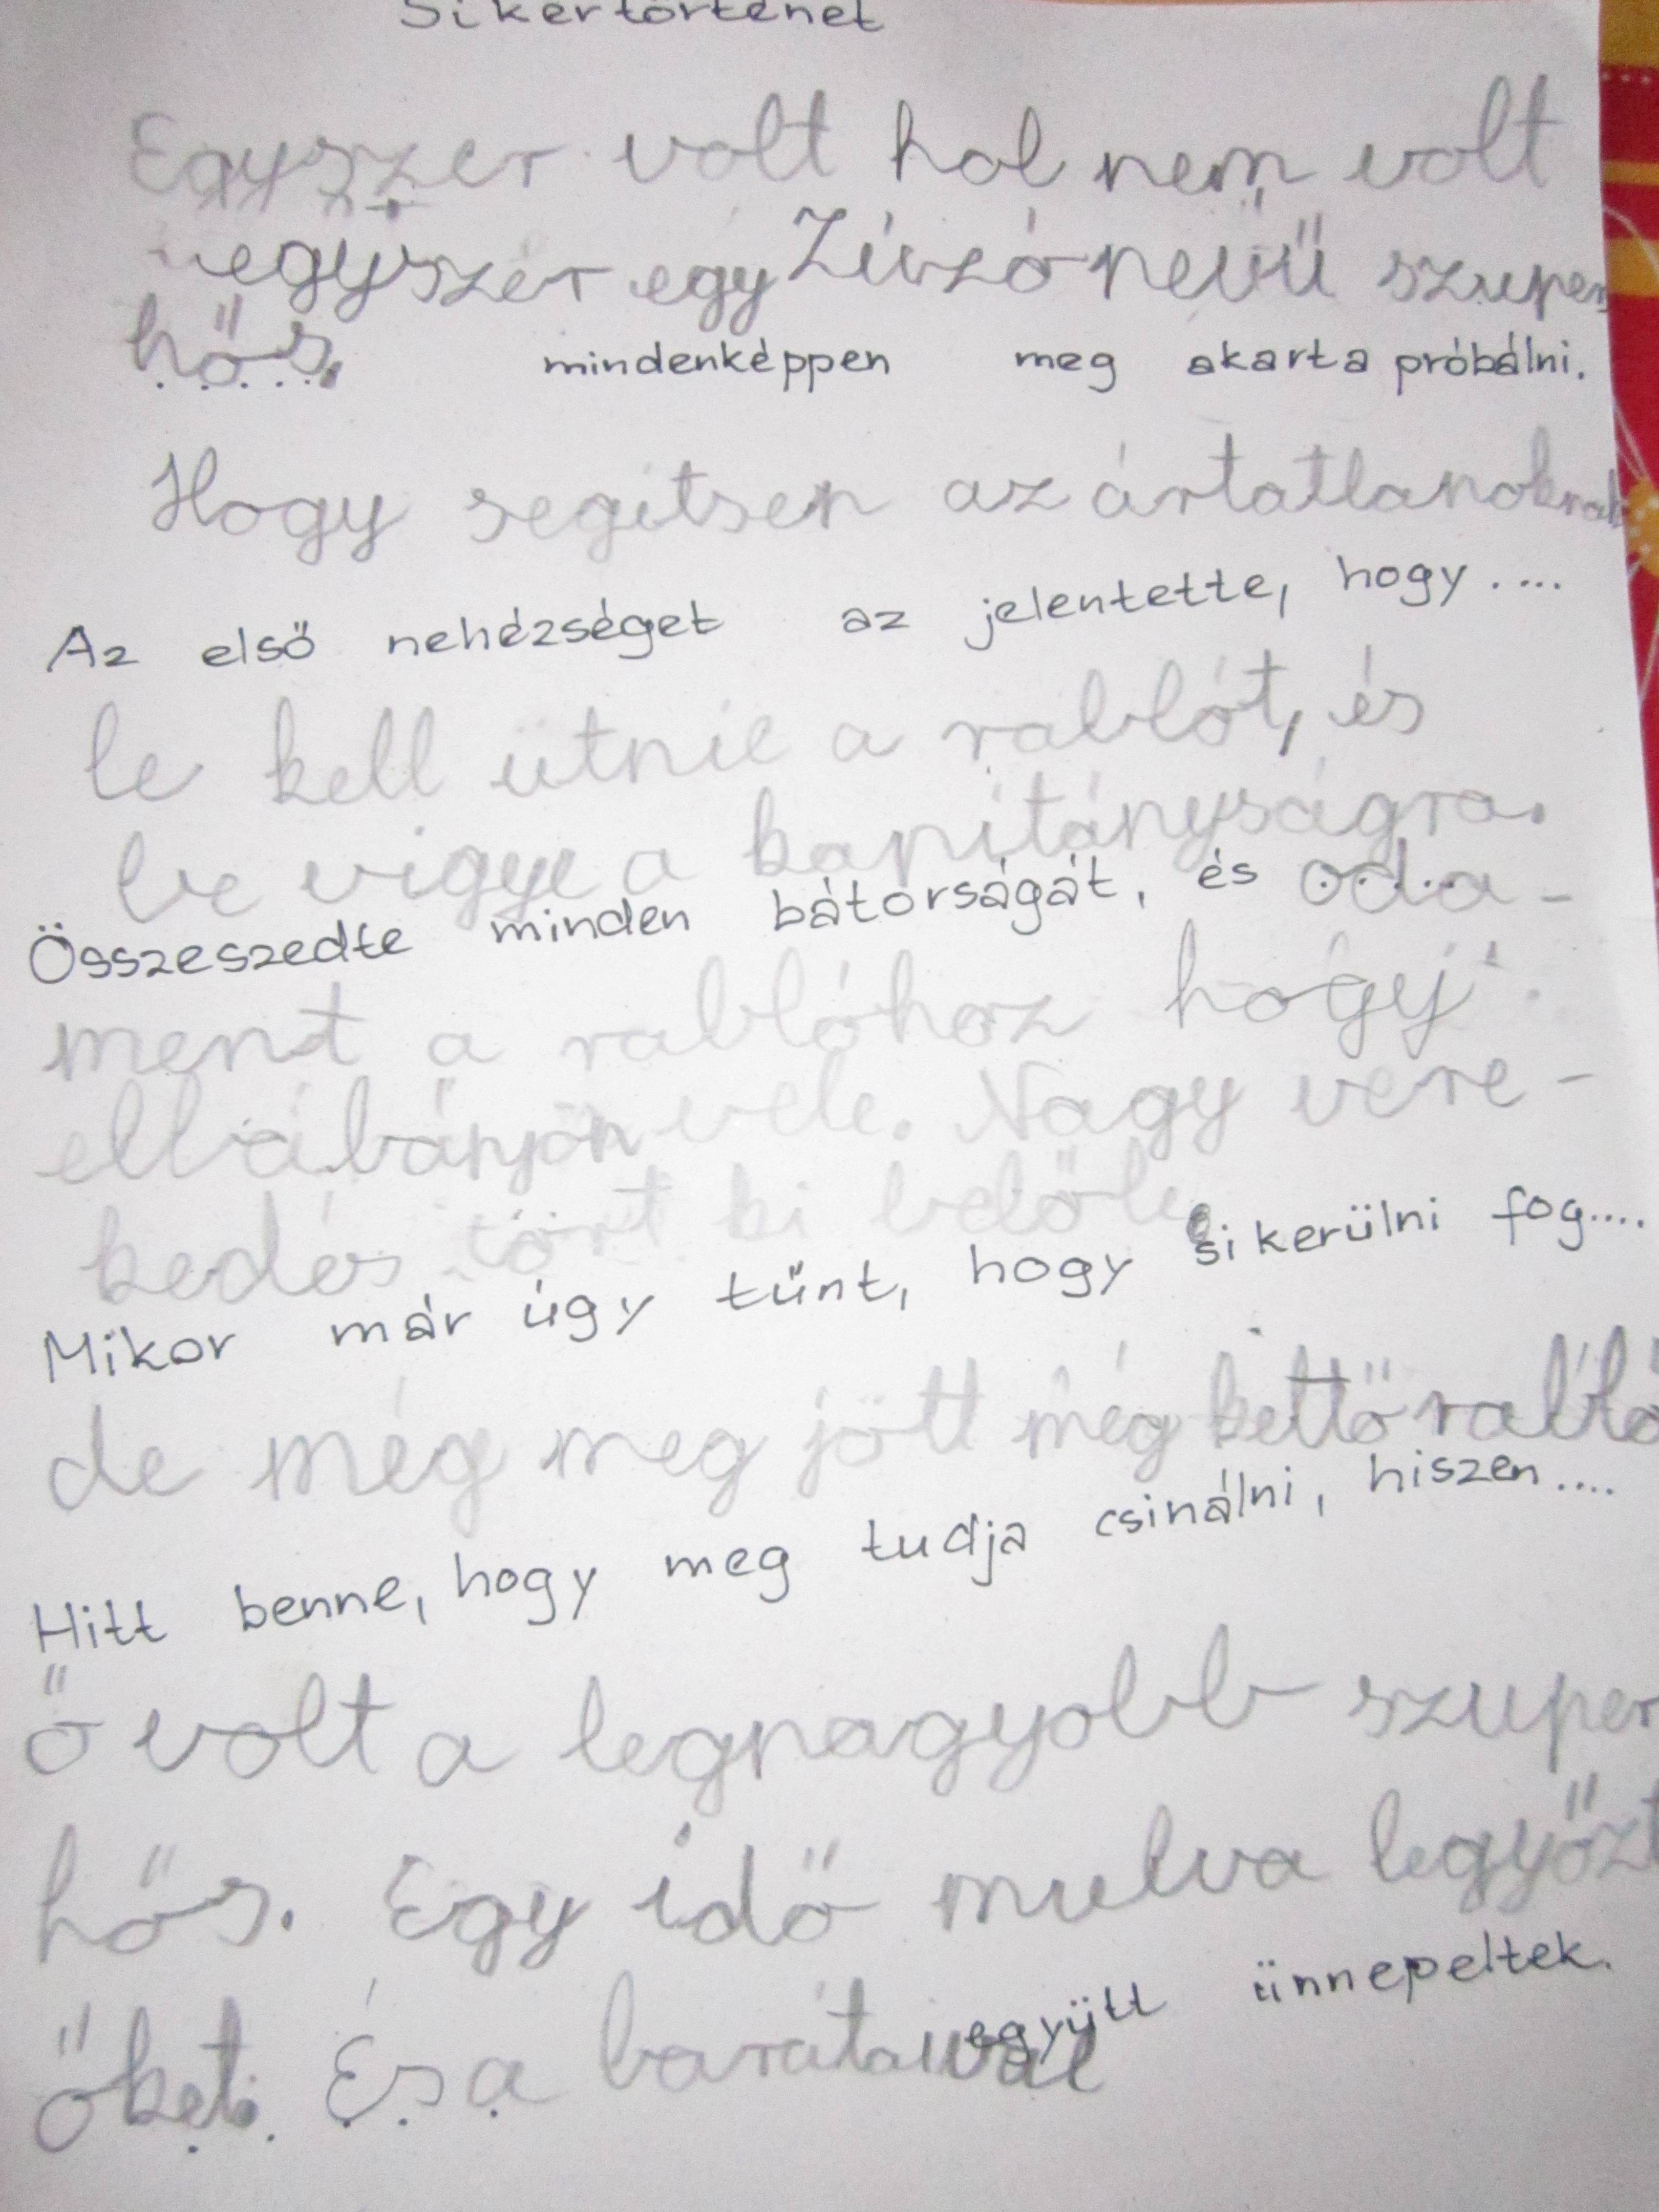 Sikertörténet
Egyszer volt hol nem volt
egyszer egy Zívzó nevű szuper
hős. mindenképpen meg akarta próbálni.
Hogy segítsen az ártatlanoknak
Az első nehézséget az jelentette, hogy....
le kell ütnie a rablót, és
be vigye a kapitányságra.
Összeszedte minden bátorságát, és oda-
ment a rablóhoz hogy
elbábánjon vele. Nagy vere-
kedés tört ki belőle
Mikor már úgy tűnt, hogy sikerülni fog....
de még meg jött még kettő rabló
Hitt benne, hogy meg tudja csinálni, hiszen....
ő volt a legnagyobb szuper
hős. Egy idő mulva legyőzt
őket. És a barátaival együtt ünnepeltek.